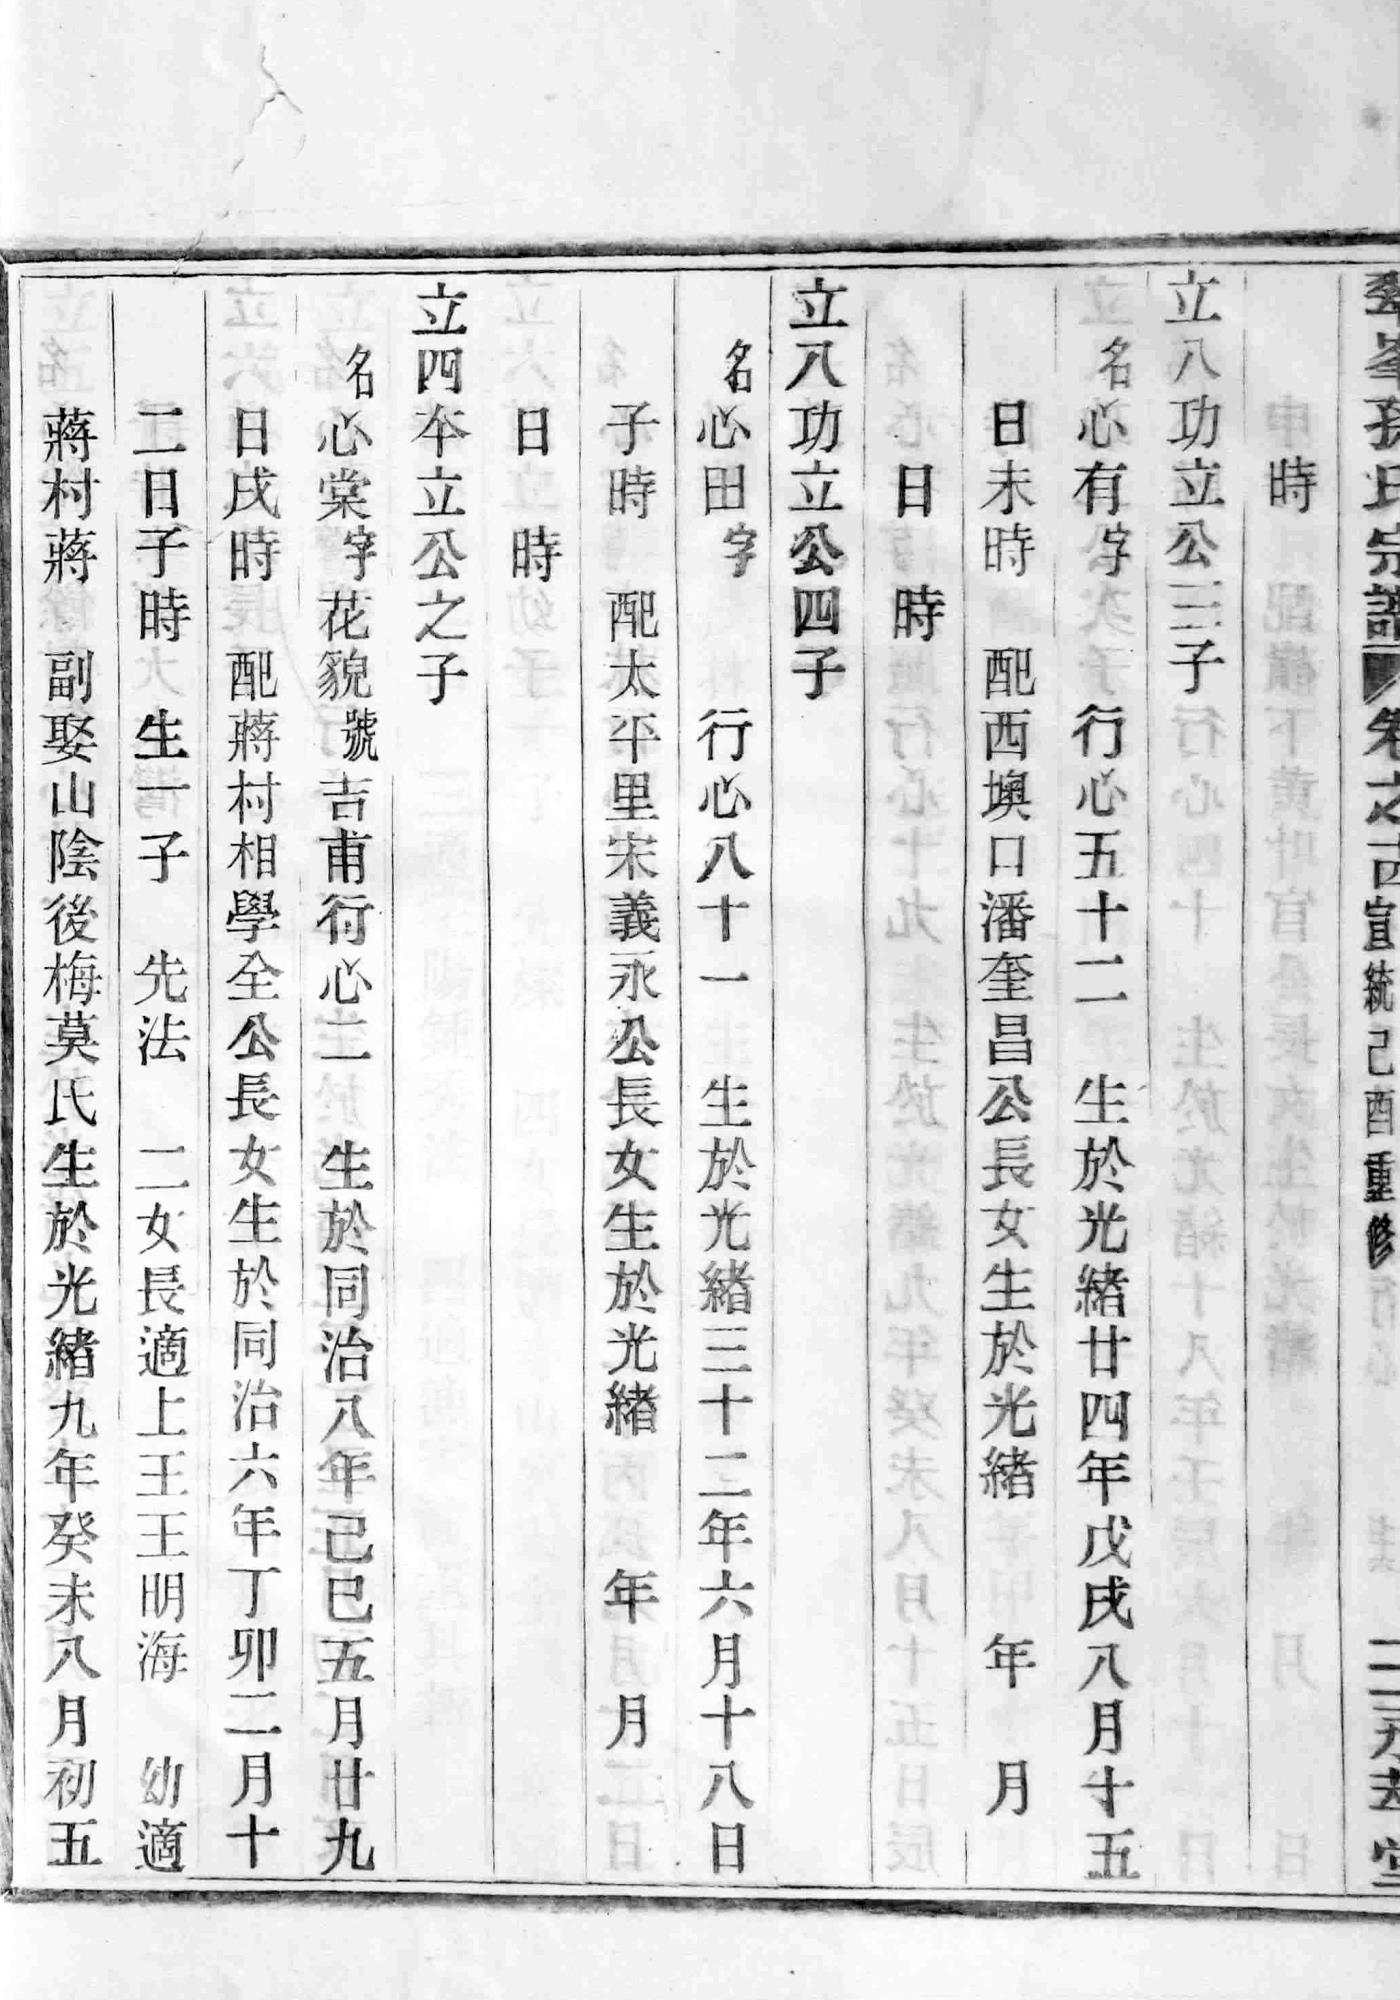 峯孫氏宗譜 卷之 宣統己酉重修
時
立八功立公三子
名心有字 行心五十二 生於光緒廿四年戊戌八月十五
日未時 配西墺口潘奎昌公長女生於光緒 年 月
日 時
立八功立公四子
名心田字 行心八十一 生於光緒三十二年六月十八日
子時 配太平里宋義永公長女生於光緒 年 月
日 時
立四本立公之子
名心棠字花貌號吉甫行心二 生於同治八年己巳五月廿九
日戌時配蔣村相學全公長女生於同治六年丁卯二月十
二日子時 生一子 先法 二女長適上王王明海 幼適
蔣村蔣 副娶山陰後梅莫氏生於光緒九年癸未八月初五